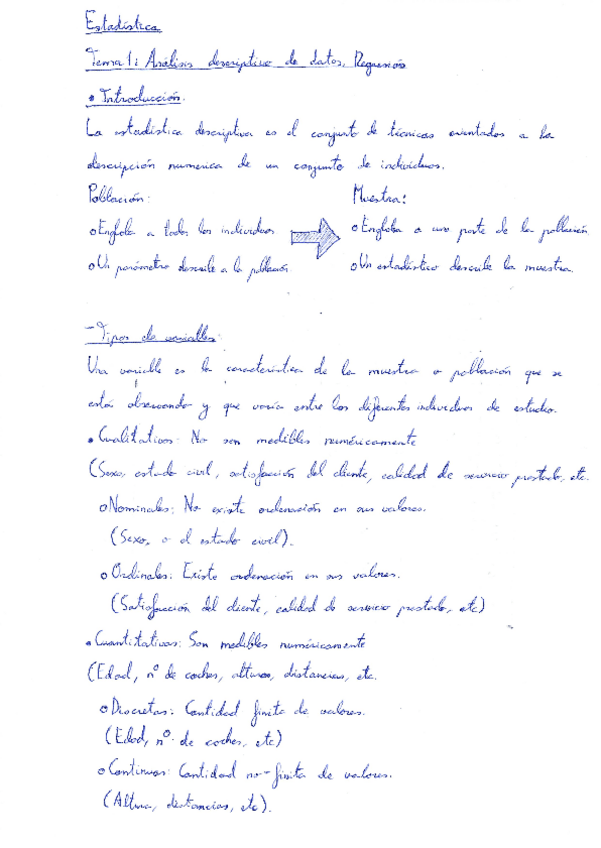 Estadística
Tema 1: Análisis descriptivo de datos. Regresión
• Introducción.
La estadística descriptiva es el conjunto de técnicas orientados a la
descripción numerica de un conjunto de individuos.
Población:
Muestra:
o Engloba a todos los individuos
o Engloba a una parte de la población
o Un parámetro describe a la población
o Un estadístico describe la muestra.
- Tipos de variables:
Una variable es la característica de la muestra o población que se
está observando y que varía entre los diferentes individuos de estudio.
• Cualitativas: No son medibles numéricamente
(Sexo, estado civil, satisfacción del cliente, calidad de servicio prestado, etc.
o Nominales: No existe ordenación en sus valores.
(Sexo, o el estado civil).
o Ordinales: Existe ordenación en sus valores.
(Satisfacción del cliente, calidad de servicio prestado, etc)
• Cuantitativas: Son medibles numéricamente
(Edad, nº de coches, alturas, distancias, etc.
o Discretas: Cantidad finita de valores.
(Edad, nº de coches, etc)
o Continuas: Cantidad no-finita de valores.
(Altura, distancias, etc).